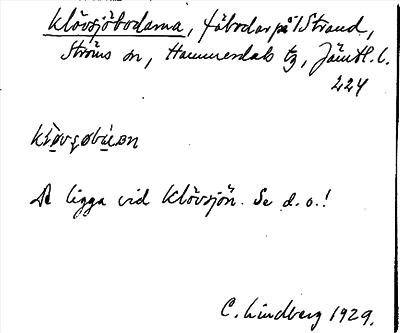 Klövsjöbodarna, fäbodar på 1 Strand,
Ströms sn, Hammerdals tg, Jämtl. l.
224
kḷövsøbúən
De ligga vid Klövsjön. Se d. o.!
C. Lindberg 1929.